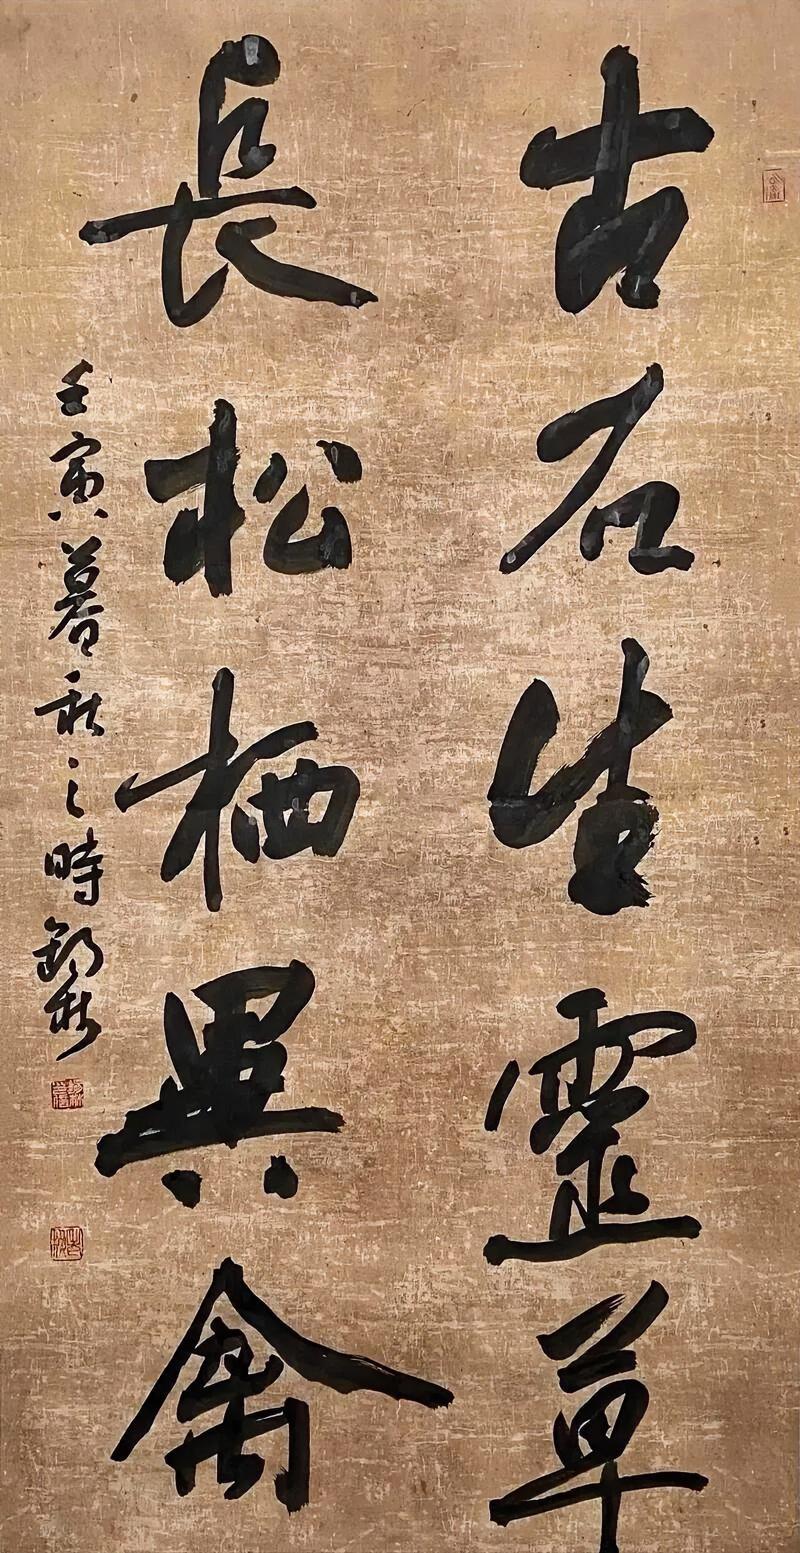 古石生靈草
長松栖異禽
壬寅暮秋之時